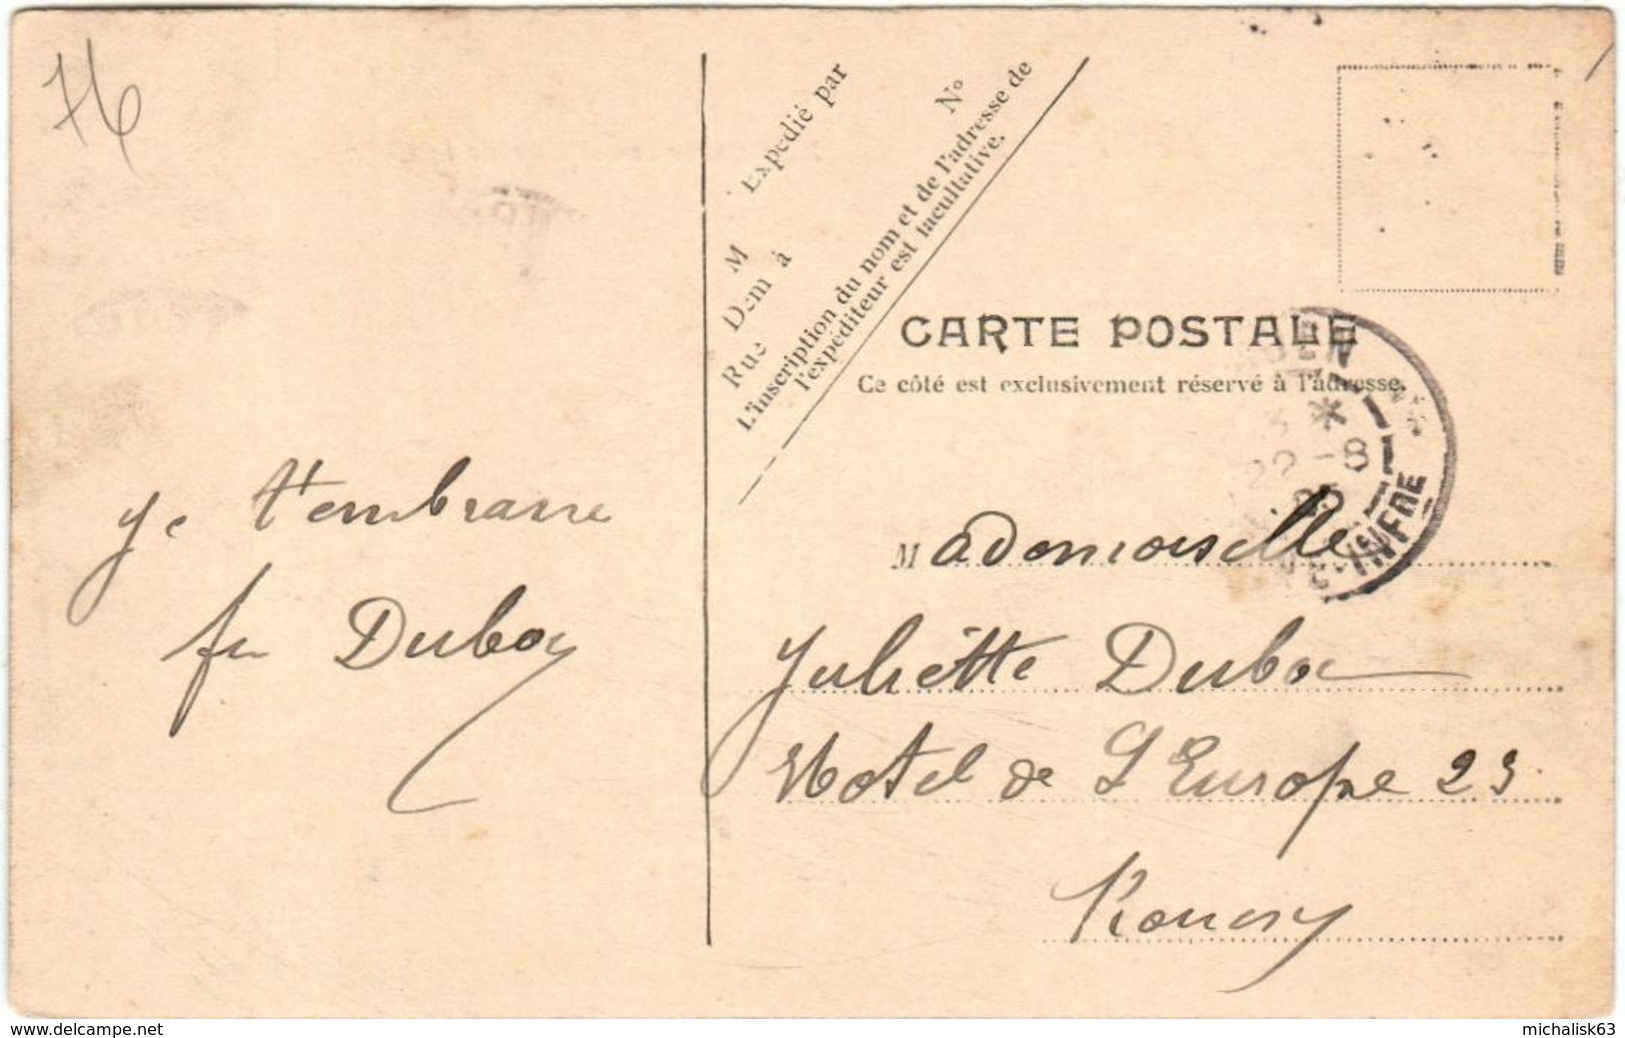 76
Expédié par
M
N°
Dem à
Rue
L'inscription du nom et de l'adresse de
l'expéditeur est facultative.
CARTE POSTALE
Ce côté est exclusivement réservé à l'adresse.
22 - 8
INFRE
Je t'embrasse
Duboy
Mademoiselle
Juliette Duboc
Hotel de L'Europe 23
Rouen
www.delcampe.net
michalisk63